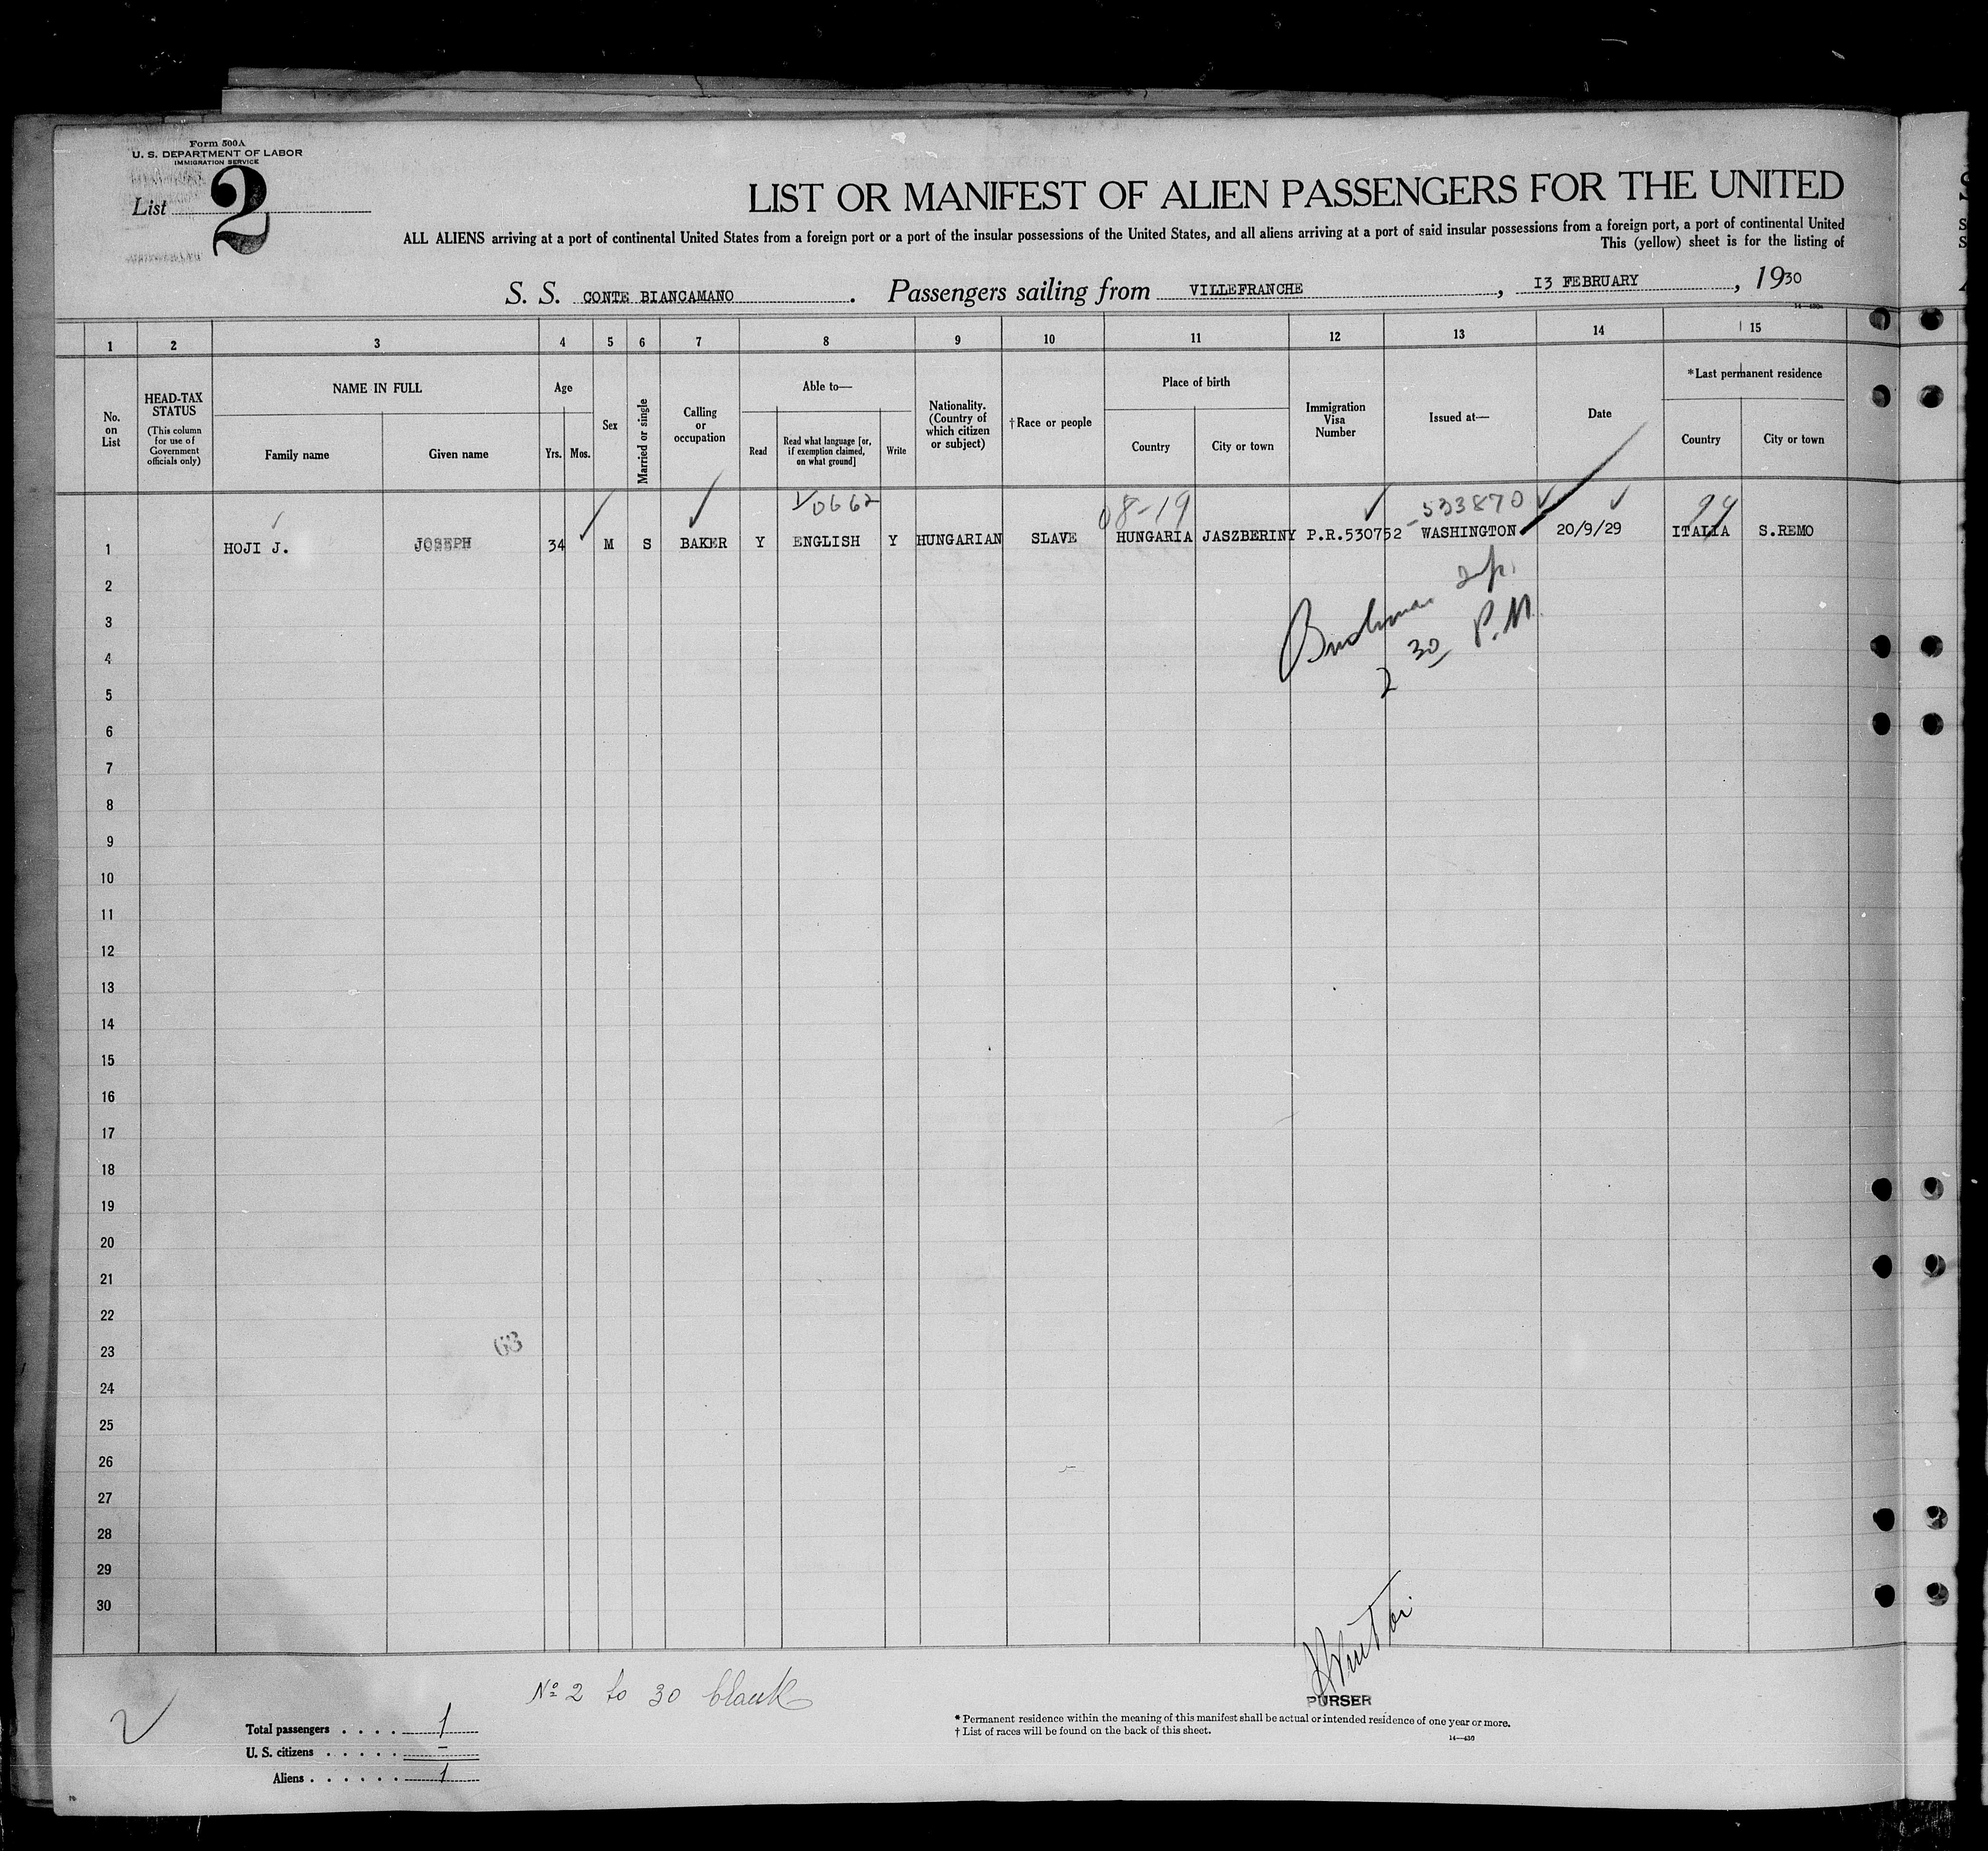 Form 500A
U. S. DEPARTMENT OF LABOR
IMMIGRATION SERVICE
List 2
LIST OR MANIFEST OF ALIEN PASSENGERS FOR THE UNITED
ALL ALIENS arriving at a port of continental United States from a foreign port or a port of the insular possessions of the United States, and all aliens arriving at a port of said insular possessions from a foreign port, a port of continental United
This (yellow) sheet is for the listing of
S. S. CONTE BIANCAMANO. Passengers sailing from VILLEFRANCHE, 13 FEBRUARY, 1930
1 2 3 4 5 6 7 8 9 10 11 12 13 14 15
No. on List
HEAD-TAX STATUS (This column for use of Government officials only)
NAME IN FULL
Family name Given name
Age
Yrs. Mos.
Sex
Married or single
Calling or occupation
Able to—
Read
Read what language [or, if exemption claimed, on what ground]
Write
Nationality. (Country of which citizen or subject)
†Race or people
Place of birth
Country City or town
Immigration Visa Number
Issued at—
Date
*Last permanent residence
Country City or town
0662 08-19 533870 94
1 HOJI J. JOSEPH 34 M S BAKER Y ENGLISH Y HUNGARIAN SLAVE HUNGARIA JASZBERINY P.R.530752 WASHINGTON 20/9/29 ITALIA S.REMO
2
3
2 30 P.M.
4
5
6
7
8
9
10
11
12
13
14
15
16
17
18
19
20
21
22
23
63
24
25
26
27
28
29
30
PURSER
Nº 2 to 30 blank
2
Total passengers . . . . 1
U. S. citizens . . . . . –
Aliens . . . . . . 1
* Permanent residence within the meaning of this manifest shall be actual or intended residence of one year or more.
† List of races will be found on the back of this sheet.
14—430